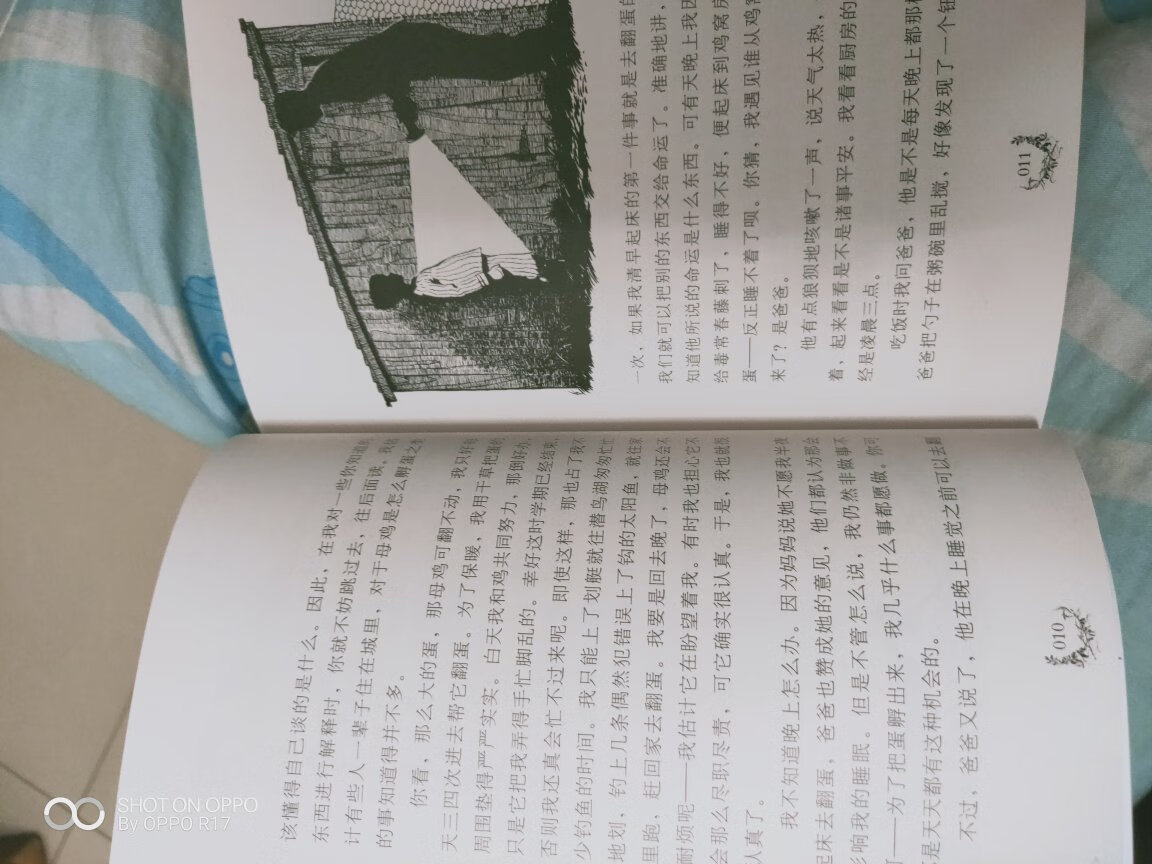 该懂得自己谈的是什么。因此，在我对一些你知道的
东西进行解释时，你就不妨跳过去，往后面读。我估
计有些人一辈子住在城里，对于母鸡是怎么孵蛋之类
的事知道得并不多。
你看，那么大的蛋，那母鸡可翻不动，我只好每
天三四次进去帮它翻蛋。为了保暖，我用干草把蛋的
周围垫得严严实实。白天我和鸡共同努力，那倒好办，
只是它把我弄得手忙脚乱的。幸好这时学期已经结束，
否则我还真会忙不过来呢。即使这样，那也占了我不
少钓鱼的时间。我只能上了划艇就往潜鸟湖匆匆忙忙
地划，钓上几条偶然犯错误上了钩的太阳鱼，就往家
里跑，赶回家去翻蛋。我要是回去晚了，母鸡还会不
耐烦呢——我估计它在盼望着我。有时我也担心它不
会那么尽职尽责，可它确实很认真。于是，我也就很
认真了。
我不知道晚上怎么办。因为妈妈说她不愿我半夜
起来去翻蛋，爸爸也赞成她的意见，他们都认为那会
影响我的睡眠。但是不管怎么说，我仍然非做事不
可——为了把蛋孵出来，我几乎什么事都愿做。你可
不是天天都有这种机会的。
不过，爸爸又说了，他在晚上睡觉之前可以去翻
010
一次，如果我清早起床的第一件事就是去翻蛋
我们就可以把别的东西交给命运了。准确地讲，
知道他所说的命运是什么东西。可有天晚上我因
给毒常春藤刺了，睡得不好，便起床到鸡窝房
蛋——反正睡不着了呗。你猜，我遇见谁从鸡窝
来了？是爸爸。
他有点狼狈地咳嗽了一声，说天气太热，
着，起来看看是不是诸事平安。我看看厨房的
经是凌晨三点。
吃饭时我问爸爸，他是不是每天晚上都那
爸爸把勺子在粥碗里乱搅，好像发现了一个
011
SHOT ON OPPO
By OPPO R17